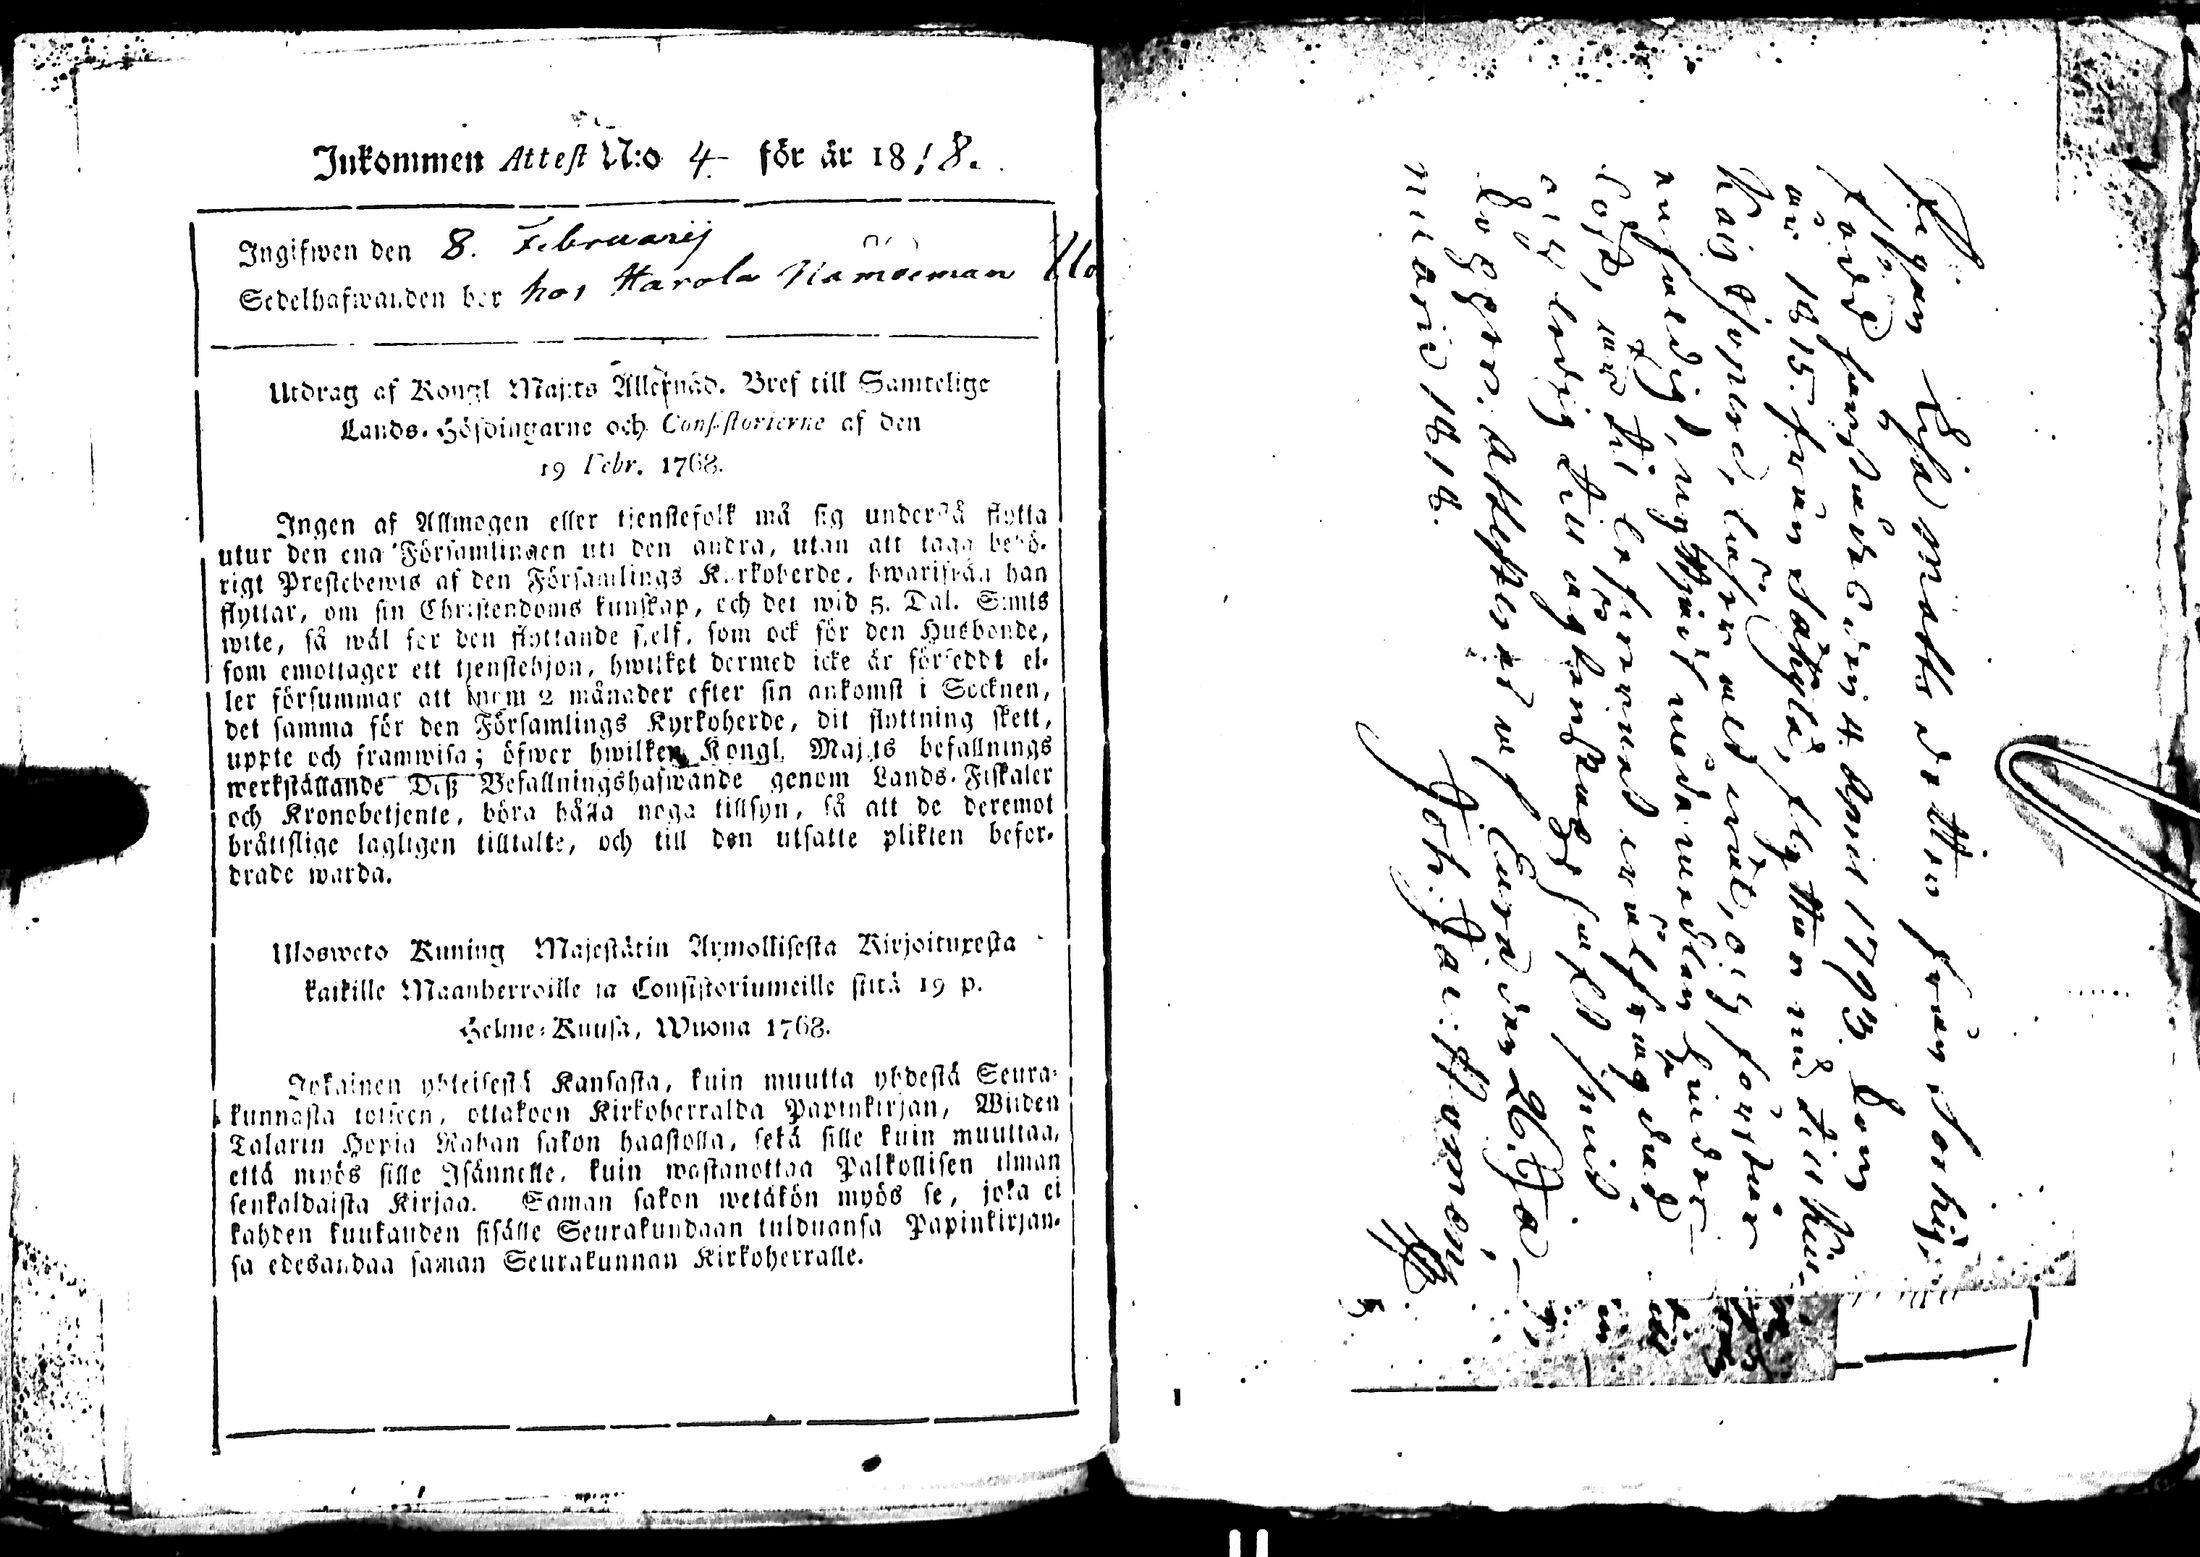 Inkommen Attest N:o 4 för år 1818.
Ingifwen den 8. Februarij
Sedelhafwanden bor hos Harola Namseman
Utdrag af Kongl Maj:ts Allernåd. Bref till Samtelige
Lands-Höfdingarne och Consistorierne af den
19 Febr. 1768.
Ingen af Allmogen eller tjenstefolk må sig understå flytta
utur den ena Församlingen uti den andra, utan att taga behö-
rigt Prestebewis af den Församlings Kyrkoherde, hwarifrån han
flyttar, om sin Christendoms kunskap, och det wid 5. Dal. S:mts
wite, så wäl för den flyttande sjelf, som ock för den Husbonde,
som emottager ett tjenstehjon, hwilket dermed icke är försedt el-
ler försummar att inom 2 månader efter sin ankomst i Socknen,
det samma för den Församlings Kyrkoherde, dit flyttning skett,
uppte och framwisa; öfwer hwilken Kongl. Maj:ts befallnings
werkställande Deß Befallningshafwande genom Lands-Fiskaler
och Kronobetjente, böra hålla noga tillsyn, så att de deremot
bråttslige lagligen tilltalte, och till den utsatte plikten befor-
drade warda.
Ulosweto Kuning Majestätin Armollisesta Kirjoituxesta
kaikille Maanherroille ja Consistoriumeille siitä 19 p.
Helme-Kuusa, Wuona 1768.
Jokainen yhteisestä Kansasta, kuin muutta yhdestä Seura-
kunnasta toiseen, ottakoon Kirkoherralda Papinkirjan, Wiiden
Talarin Hopia Rahan sakon haastolla, sekä sille kuin muuttaa,
että myös sille Isännelle, kuin wastanottaa Palkollisen ilman
senkaldaista Kirjaa. Saman sakon wetäkön myös se, joka ei
kahden kuukauden sisälle Seurakundaan tulduansa Papinkirjan-
sa edesandaa saman Seurakunnan Kirkoherralle.
Pigan Lisa Matts dotter från Sorkis,
född härstädes den 4 April 1793. kom
år 1815 från Säkylä, flyttar nu till Kiu-
kais Capell, läser väl, förstår
enfaldigt, nyttjat nådamedlen,
är till lefvernet
och ledig till ägtenskap
bygger. attesterad af Eura den 26. Ja-
nuarii 1818.
Joh: Jac: